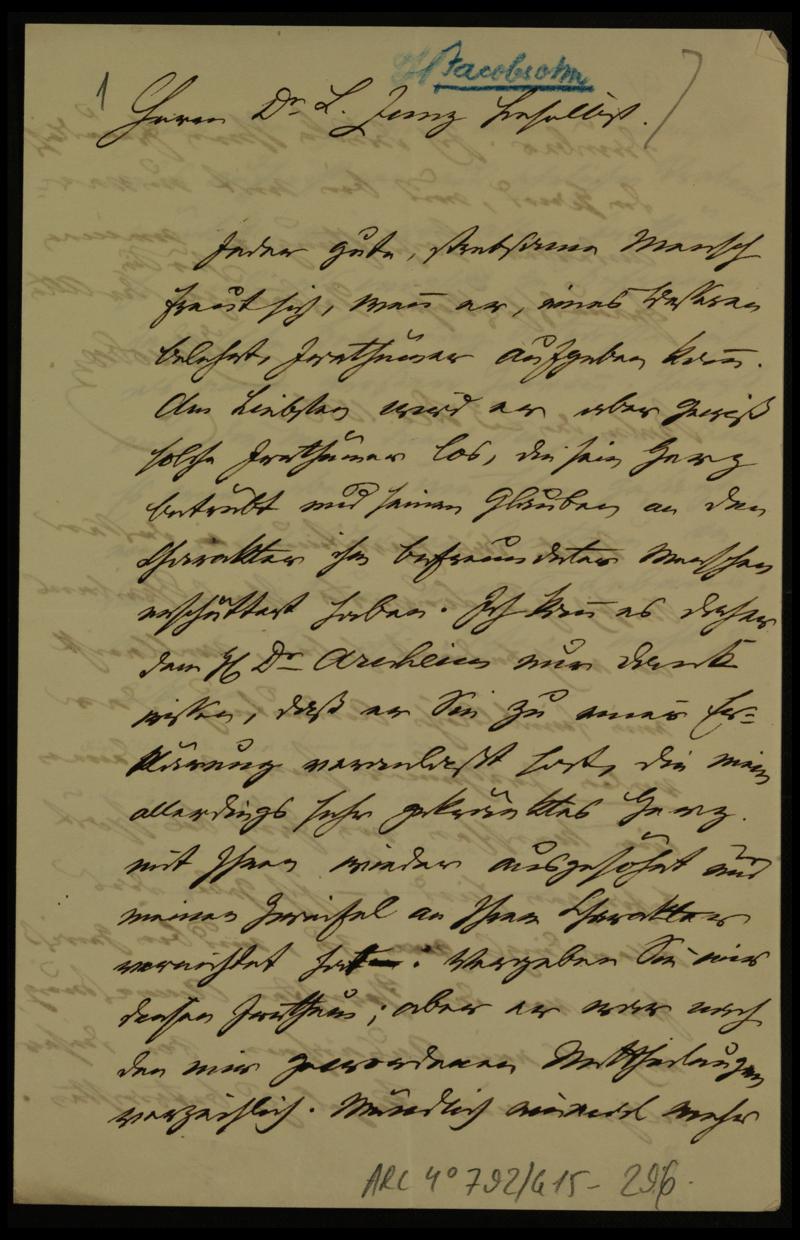 H Jacobsohn
1
Herrn Dr L. Zunz hieselbst.
Jeder gute, strebsame Mensch
freut sich, wenn er, eines Besseren
belehrt, Irrthümer aufgeben kann.
Am Liebsten wird er aber gewiß
solche Irrthümer los, die sein Herz
betrübt und seinen Glauben an den
Charakter ihm befreundeter Menschen
erschüttert haben. Ich kann es daher
dem H Dr Arnheim nur Dank
wissen, daß er Sie zu einer Er=
klärung veranlaßt hat, die mein
allerdings sehr gekränktes Herz
mit Ihnen wieder ausgesöhnt und
meinen Zweifel an Ihrem Charakter
vernichtet hat. Vergeben Sie mir
diesen Irrthum; aber er war nach
den mir gewordenen Mittheilungen
verzeihlich. Mündlich einmal mehr
ARC 4° 792/G15-296.